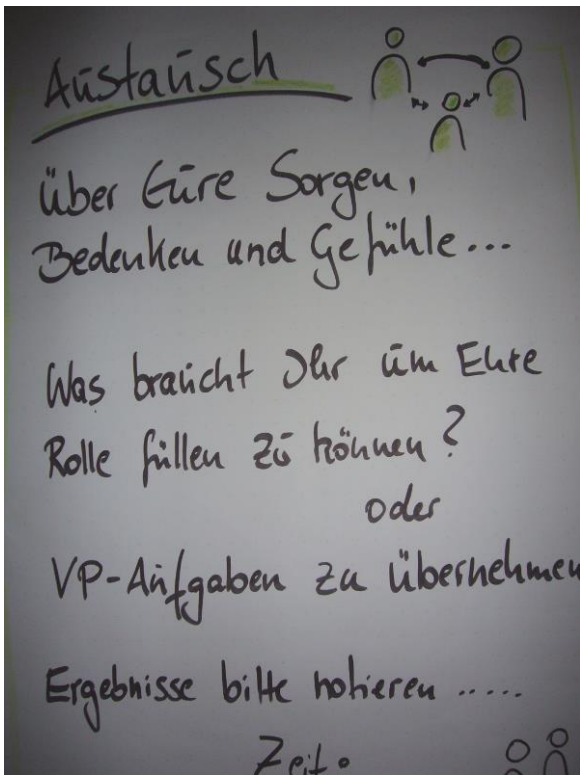 Austausch
über Eure Sorgen,
Bedenken und Gefühle...
Was braucht Ihr um Eure
Rolle füllen zu können?
oder
VP-Aufgaben zu übernehmen
Ergebnisse bitte notieren .....
Zeit: